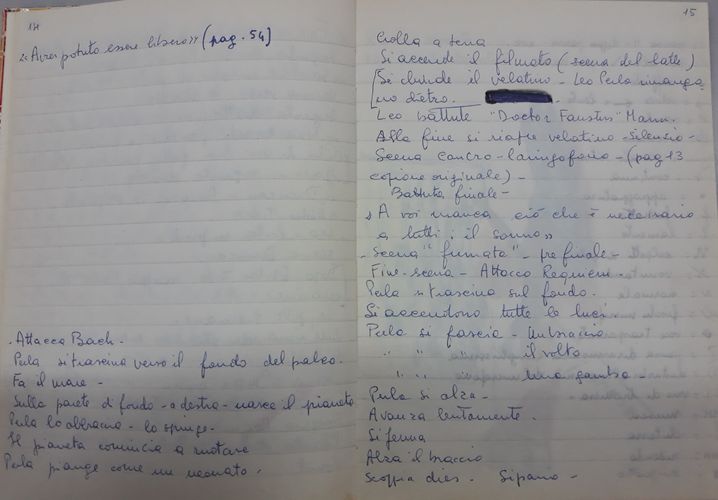 14
«Avrei potuto essere libero» (pag. 54]
. Attacca Bach.
Perla si trascina verso il fondo del palco.
Fa il mare -
Sulla parete di fondo - a destra - nasce il pianeta
Perla lo abbraccia - lo spinge.
Il pianeta comincia a ruotare
Perla piange come un neonato.
15
Crolla a terra
Si accende il filmato (scena del latte)
[Si chiude il velatino - Leo Perla rimango_
no dietro.
Leo battute "Doctor Faustus" Mann.
Alla fine si riapre velatino - Silenzio -
Scena cancro - laringofono - (pag 13
copione originale) -
Battuta finale -
«A voi manca ciò che è necessario
a tutti: il sonno»
- Scena "fumata" - pre finale -
Fine - scena - Attacco Requiem -
Perla si trascina sul fondo.
Si accendono tutte le luci
Perla si fascia - Un braccio
" " il volto
" " " Una gamba -
Perla si alza -
Avanza lentamente.
Si ferma
Alza il braccio
Scoppia dies - Sipario -